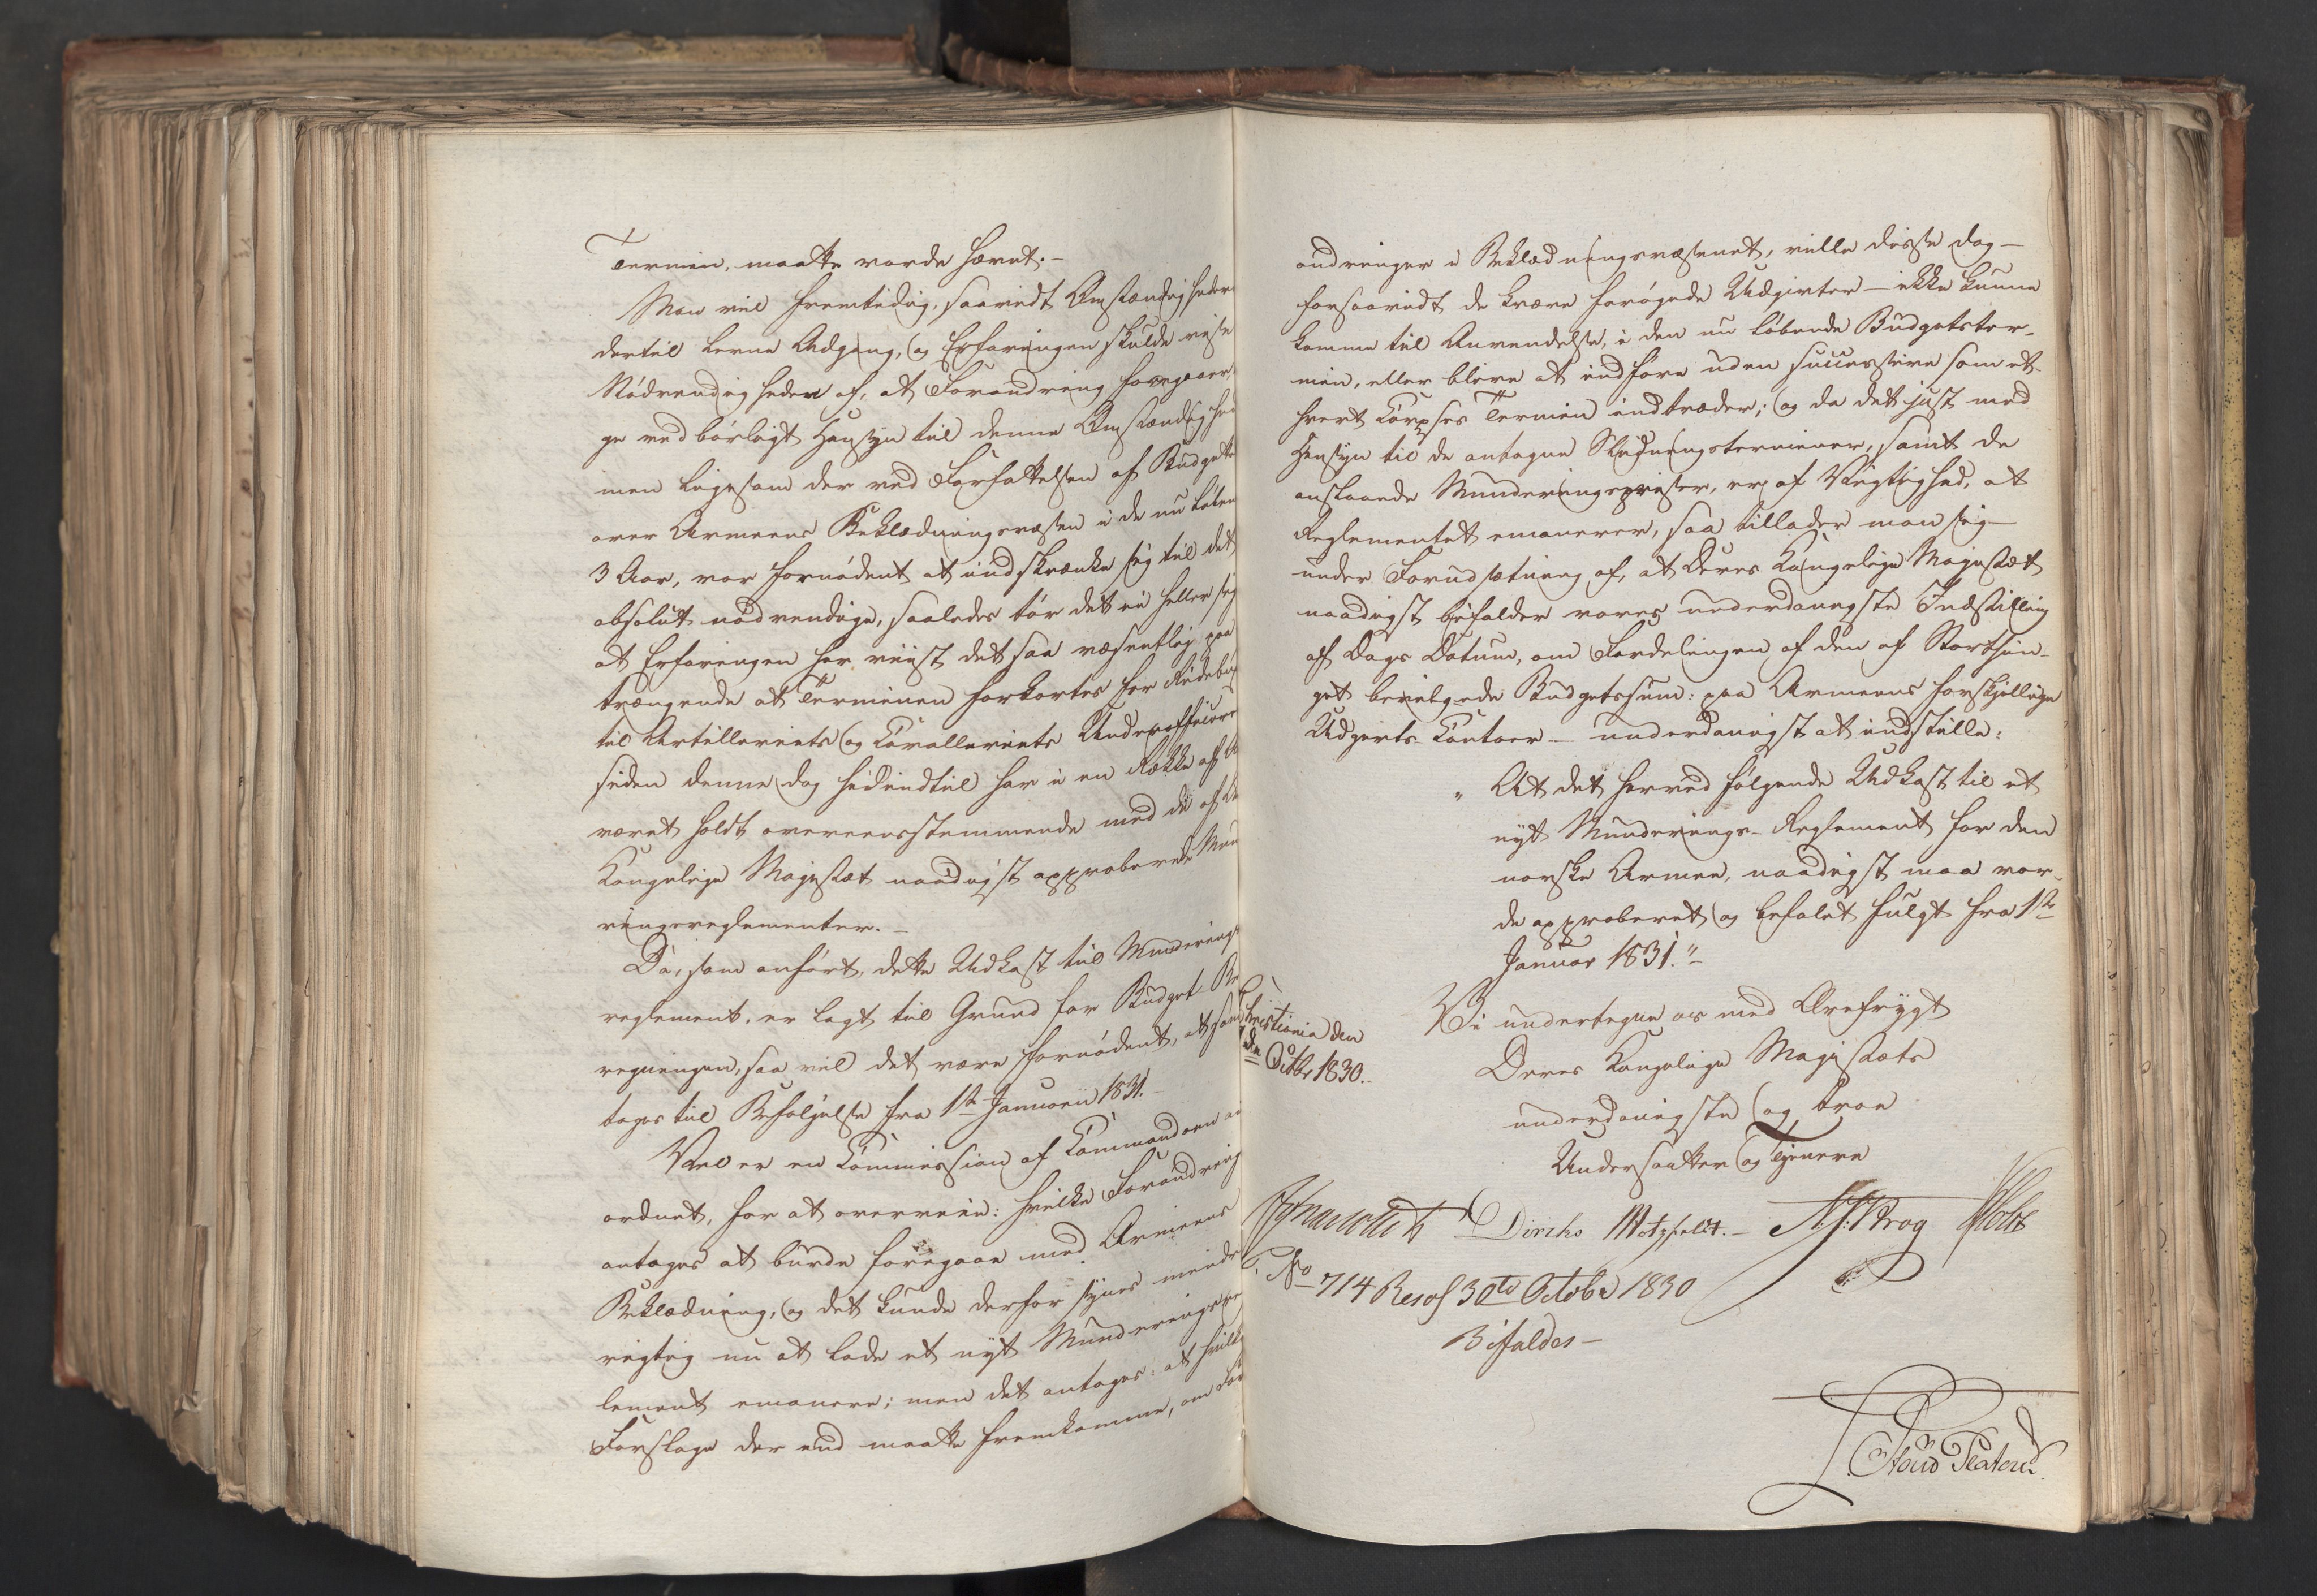 Termin, maatte vorde hævet. –
Man vil fremtidig, saavidt Omstændigheder
dertil levne Adgang, og Erfaringen skulde vise
Nødvendigheden af, at Forandring foregaaer,
ved børligt Hensyn til denne
men ligesom der ved Forfattelsen af Budgettet
over Armeens Beklædningsvæsen i de nu løben
3 Aar, var fornødent at indskrænke sig til det
absolut nødvendige, saaledes tør det ei heller sig
at Erfaringen har viist det saa væsentlig paa
trængende at Terminen forkortes for
til Artilleriets og Cavalleriets Underofficierer
siden denne dog hidindtil har i en Række af
været holdt overeensstemmende med de af
Kongelige Majestæt naadigst approberede Mun
ringsreglementer. –
Da, som anført, dette Udkast til Munderings
reglement, er lagt til Grund for Budget Be
regningen, saa vil det være fornødent, at
tages til Befølgelse fra 1ste Januarii 1831. –
Vel er en Commission af Commandoen
ordnet, for at overveie: hvilke Forandring
antages at burde foregaae med Armeens
Beklædning, og det kunde derfor synes mindre
rigtig nu at lade et nyt Munderingsreg
lement emanere; men det antages, at hvilke
Forslage der end maatte fremkomme, om For
andringer i Beklædningsvæsenet, ville disse dog –
forsaavidt de kræve forøgede Udgivter – ikke kunne
komme til Anvendelse, i den nu løbende Budgetster-
min, eller blive at indføre uden successive som et-
hvert Corpses Termin indtræder; og da det just med
Hensyn til de antagne Slidningsterminer, samt de
anslaaede Munderingspriser, er af Vigtighed, at
Reglementet emanerer, saa tillader man sig –
under Forudsætning af, at Deres Kongelige Majestæt
naadigst bifalder vores underdanigste Indstilling
af Dags Datum, om Fordelingen af den af Storthin-
get bevilgede Budgetssum: paa Armeens forskjellige
Udgivts-Contoer – underdanigst at indstille:
„ At det herved følgende Udkast til et
nyt Munderings-Reglement for den
norske Armee, naadigst maa vor-
de approberet og befalet fulgt fra 1ste
Januar 1831." –
Christiania den
Octbr 1830.
Vi undertegne os med Ærefrygt
Deres Kongelige Majestæts
underdanigste og troe
Undersaatter og Tjenere
Diriks Motzfeldt. – Krog Holst
No 714 Resol 30te Octobr 1830
Bifaldes –